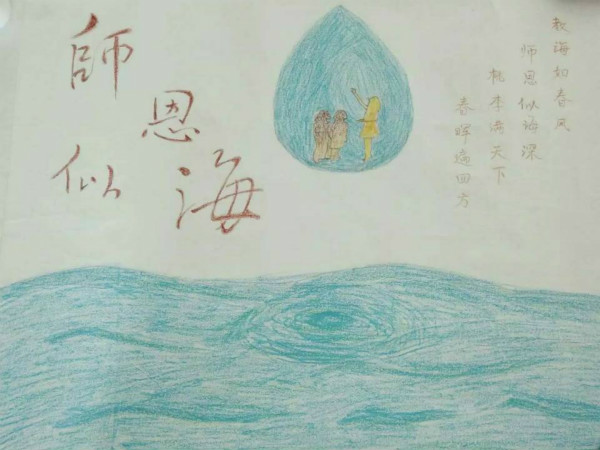 師恩似海
教海如春风
师恩似海深
桃李满天下
春晖遍四方